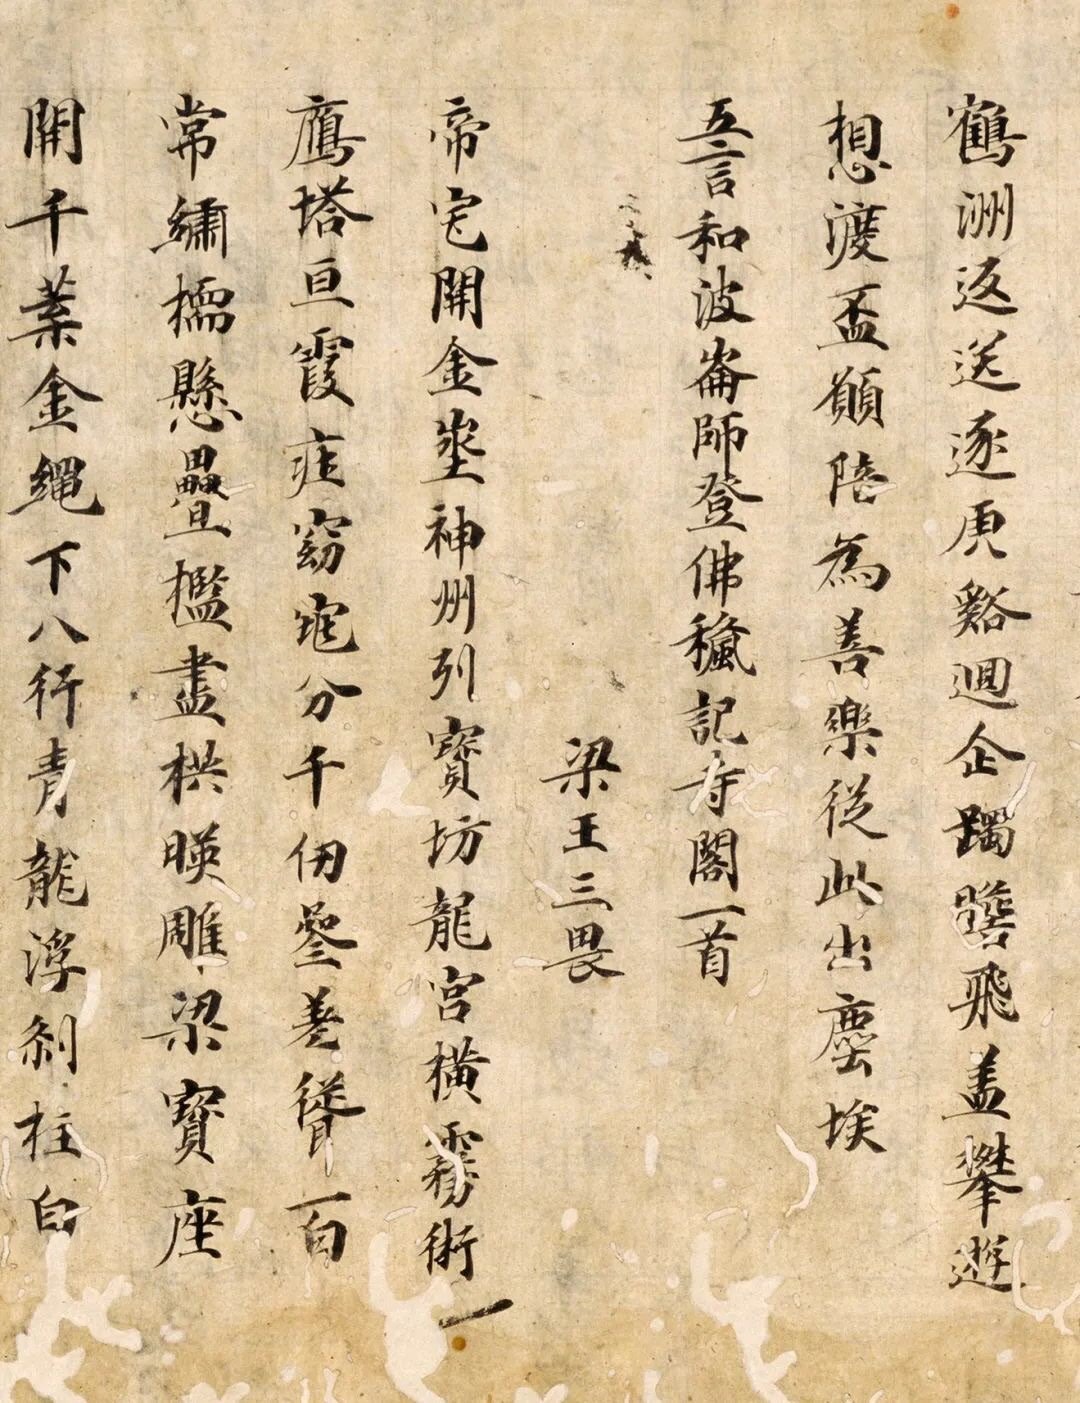 鶴洲返送逐虎谿迴企躅瞻飛盖攀遊
想渡盃願陪為善樂從此出塵埃
五言和波崙師登佛𥠢記寺閣一首
梁王三畏
帝宅開金埊神州列寶坊龍宮橫霧術
鷹塔亘霞庄窈窕分千仞參差聳百
常繡檽懸疊檻畫栱暎雕梁寶座
開千葉金繩下八行青龍浮刹柱白